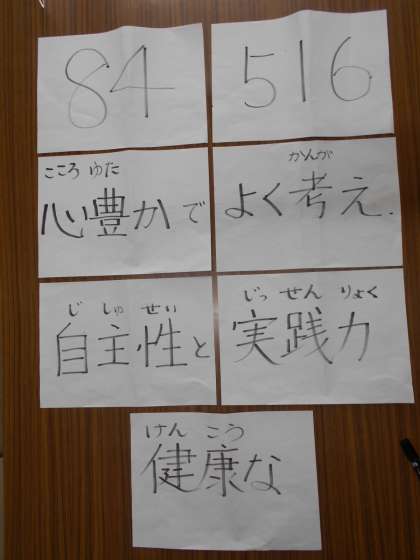 84
516
こころ ゆた
心豊かで
かんが
よく考え.
じ しゅ せい
自主性と
じっ せん りょく
実践力
けん こう
健康な